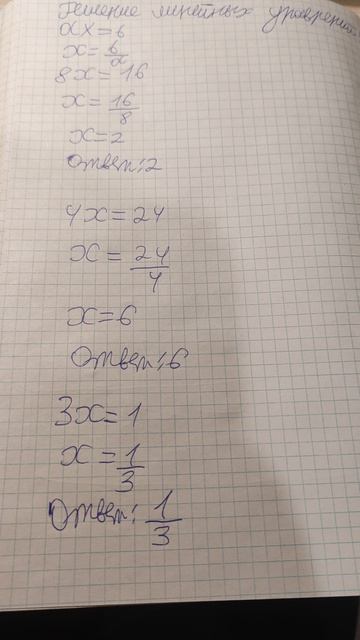 Решение линейных уравнений
ax=b
x=b/a
8x=16
x=16/8
x=2
Ответ:2
4x=24
x=24/4
x=6
Ответ:6
3x=1
x=1/3
Ответ:1/3